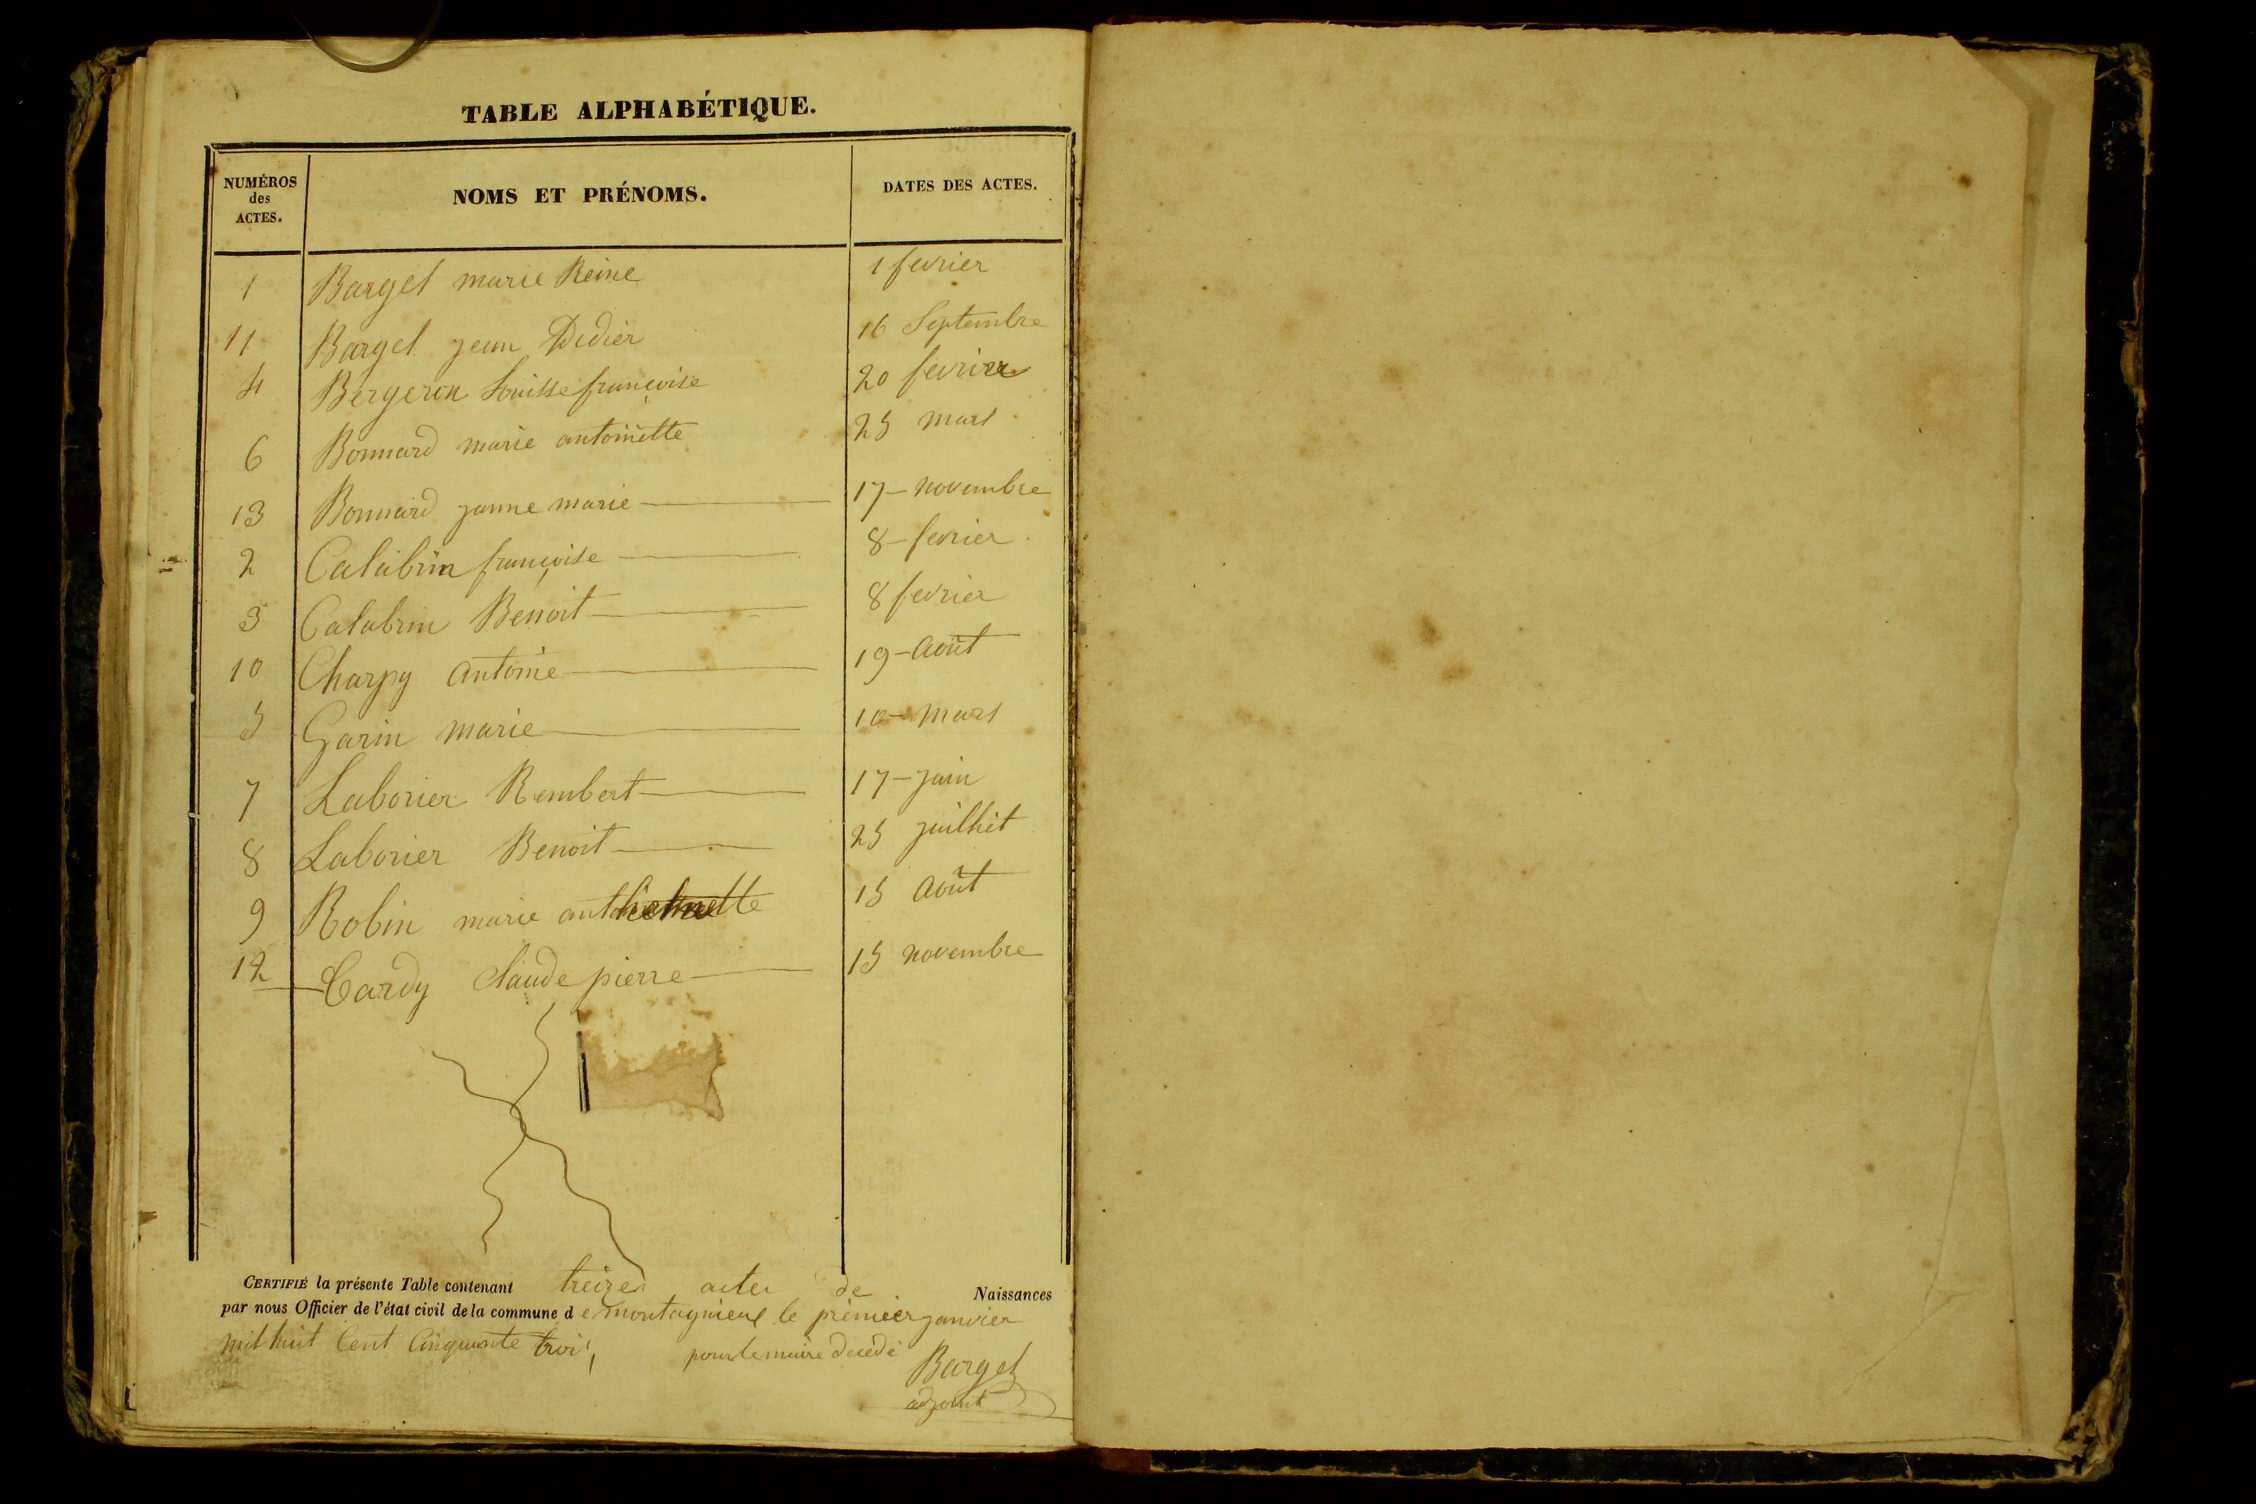 TABLE ALPHABÉTIQUE.
NUMÉROS des ACTES. NOMS ET PRÉNOMS. DATES DES ACTES.
1 Barget marie Reine 1 fevrier
11 Barget jean Didier 16 Septembre
4 Bergeron Louisse françoise 20 fevrier
6 Bonnard marie antoinette 25 mars
13 Bonnard janne marie 17 - novembre
2 Calabrin françoise 8 - fevrier
3 Calabrin Benoit 8 fevrier
10 Charpy antoine 19 - août
5 Garin marie 10 - mars
7 Laborier Rembert 17 - juin
8 Laborier Benoit 25 juilliet
9 Robin marie 15 août
12 Cardy Claude pierre 15 novembre
CERTIFIÉ la présente Table contenant treizes actes de Naissances
par nous Officier de l'état civil de la commune de montagnieux le premier janvier
mil huit Cent Cinquante trois,
pour le maire decedé Barget
adjoint